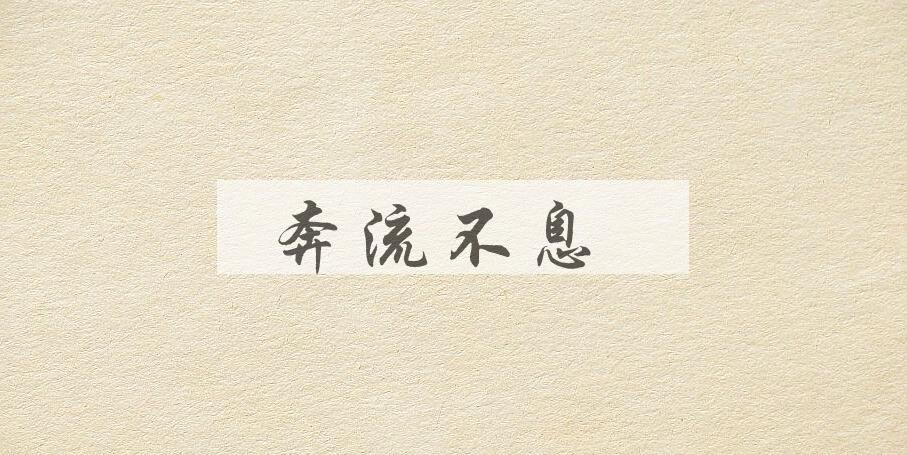 奔流不息